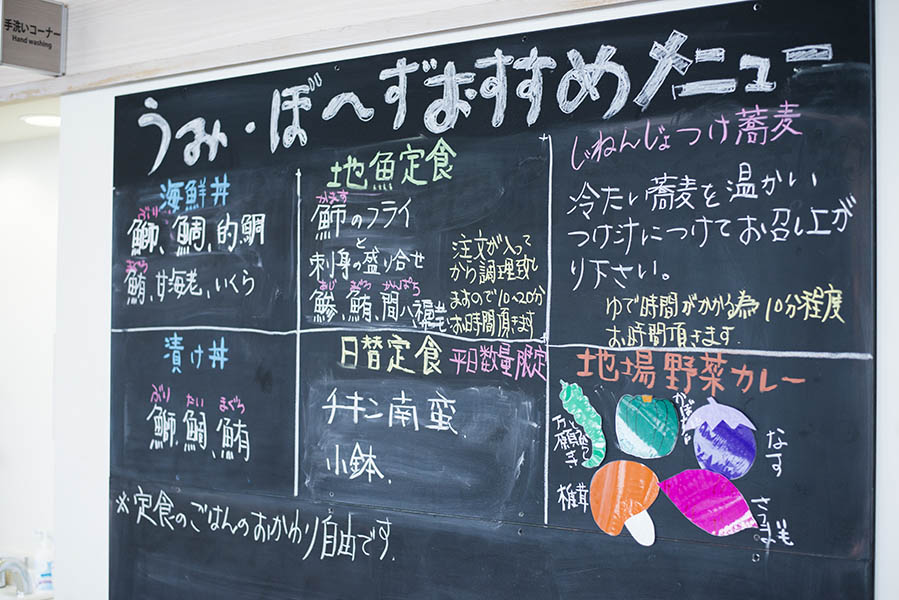 手洗いコーナー
Hand washing
うみ・ぼーずおすすめメニュー
海鮮丼
ぶり
鰤、鯛、的鯛
まぐろ
鮪、甘海老、いくら
地魚定食
かます
魳のフライ
と
刺身の盛り合せ
あじ まぐろ かんぱち
鯵、鮪、間八
注文が入って
から調理致し
ますので10~20分
お時間頂きます
じねんじょつけ蕎麦
冷たい蕎麦を温かい
つけ汁につけてお召し上が
り下さい。
ゆで時間がかかる為10分程度
お時間頂きます
漬け丼
ぶり たい まぐろ
鰤、鯛、鮪
日替定食 平日数量限定
チキン南蛮
小鉢
地場野菜カレー
かぼちゃ
なす
万願寺
椎茸
さつまいも
※定食のごはんのおかわり自由です。